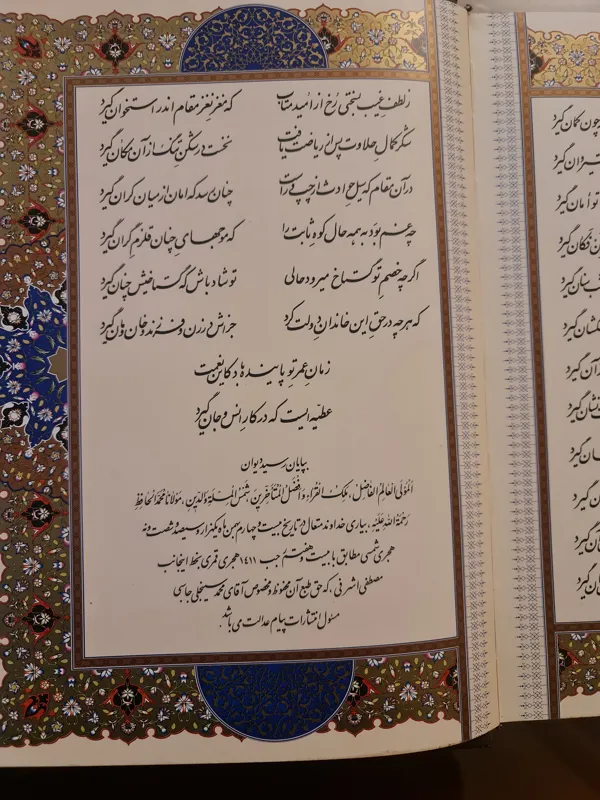 ز لطف غیب بسختی رخ از امید متاب که مغز نغز مقام اندر استخوان گیرد
شکر کمال حلاوت پس از ریاضت یافت نخست در شکن تنگ از آن مکان گیرد
در آن مقام که سیل حوادث از چپ و راست چنان رسد که امان از میان کران گیرد
چه غم بود بهمه حال کوه ثابت را که موجهای چنان قلزم گران گیرد
اگرچه خصم تو گستاخ میرود حالی تو شاد باش که گستاخیش چنان گیرد
که هر چه در حق این خاندان دولت کرد جزاش در زن و فرزند و خان و مان گیرد
زمان عمر تو پاینده باد کاین نعمت
عطیه ایست که در کار انس و جان گیرد
بپایان رسید دیوان
المولی العالم الفاضل، ملک القراء و افضل المتأخرین، شمس الملة والدین، مولانا محمد الحافظ
رحمة الله علیه، بیاری خداوند متعال در تاریخ بیست و چهارم بهمن ماه یکهزار و سیصد و شصت و نه
هجری شمسی مطابق با بیست و هفتم رجب ۱۴۱۱ هجری قمری بخط اینجانب
مصطفی اشرفی، که حق طبع آن محفوظ و مخصوص آقای محمد
مسئول انتشارات پیام عدالت می باشد.
چون کمان گیرد
گیرد
امان گیرد
گیرد
گیرد
گیرد
گیرد
گیرد
گیرد
گیرد
گیرد
گیرد